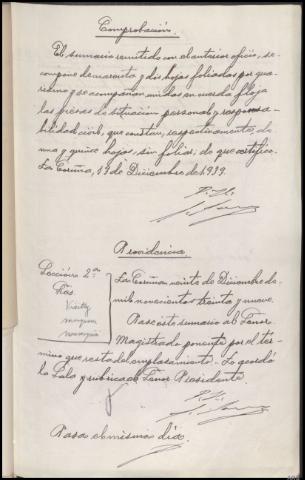 Comprobación.
El sumario remitido con el anterior oficio, se
compone de noventa y dos hojas foliadas por guarismo y se acompañan unidas en cuerda floja
las piezas de situación personal y responsa-
bilidad civil, que constan, respectivamente, de
una y quince hojas, sin foliar, de que certifico.
La Coruña, 19 de Diciembre de 1939.
Providencia.
Sección 2ª
Sres
La Coruña veinte de Diciembre de
mil novecientos treinta y nueve.
Pase este sumario al Señor
Magistrado ponente por el ter-
mino que resta del emplazamiento.- Lo acordó
la Sala y rubrica el Señor Presidente.
Pasa el mismo día.